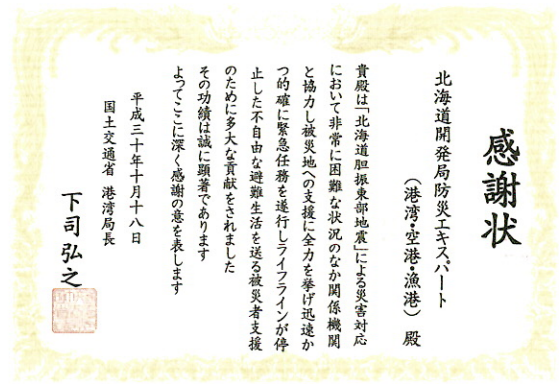 感謝状
北海道開発局防災エキスパート
（港湾・空港・漁港）殿
貴殿は「北海道胆振東部地震」による災害対応
において非常に困難な状況のなか関係機関
と協力し被災地への支援に全力を挙げ迅速か
つ的確に緊急任務を遂行しライフラインが停
止した不自由な避難生活を送る被災者支援
のために多大な貢献をされました
その功績は誠に顕著であります
よってここに深く感謝の意を表します
平成三十年十月十八日
国土交通省 港湾局長
下司弘之